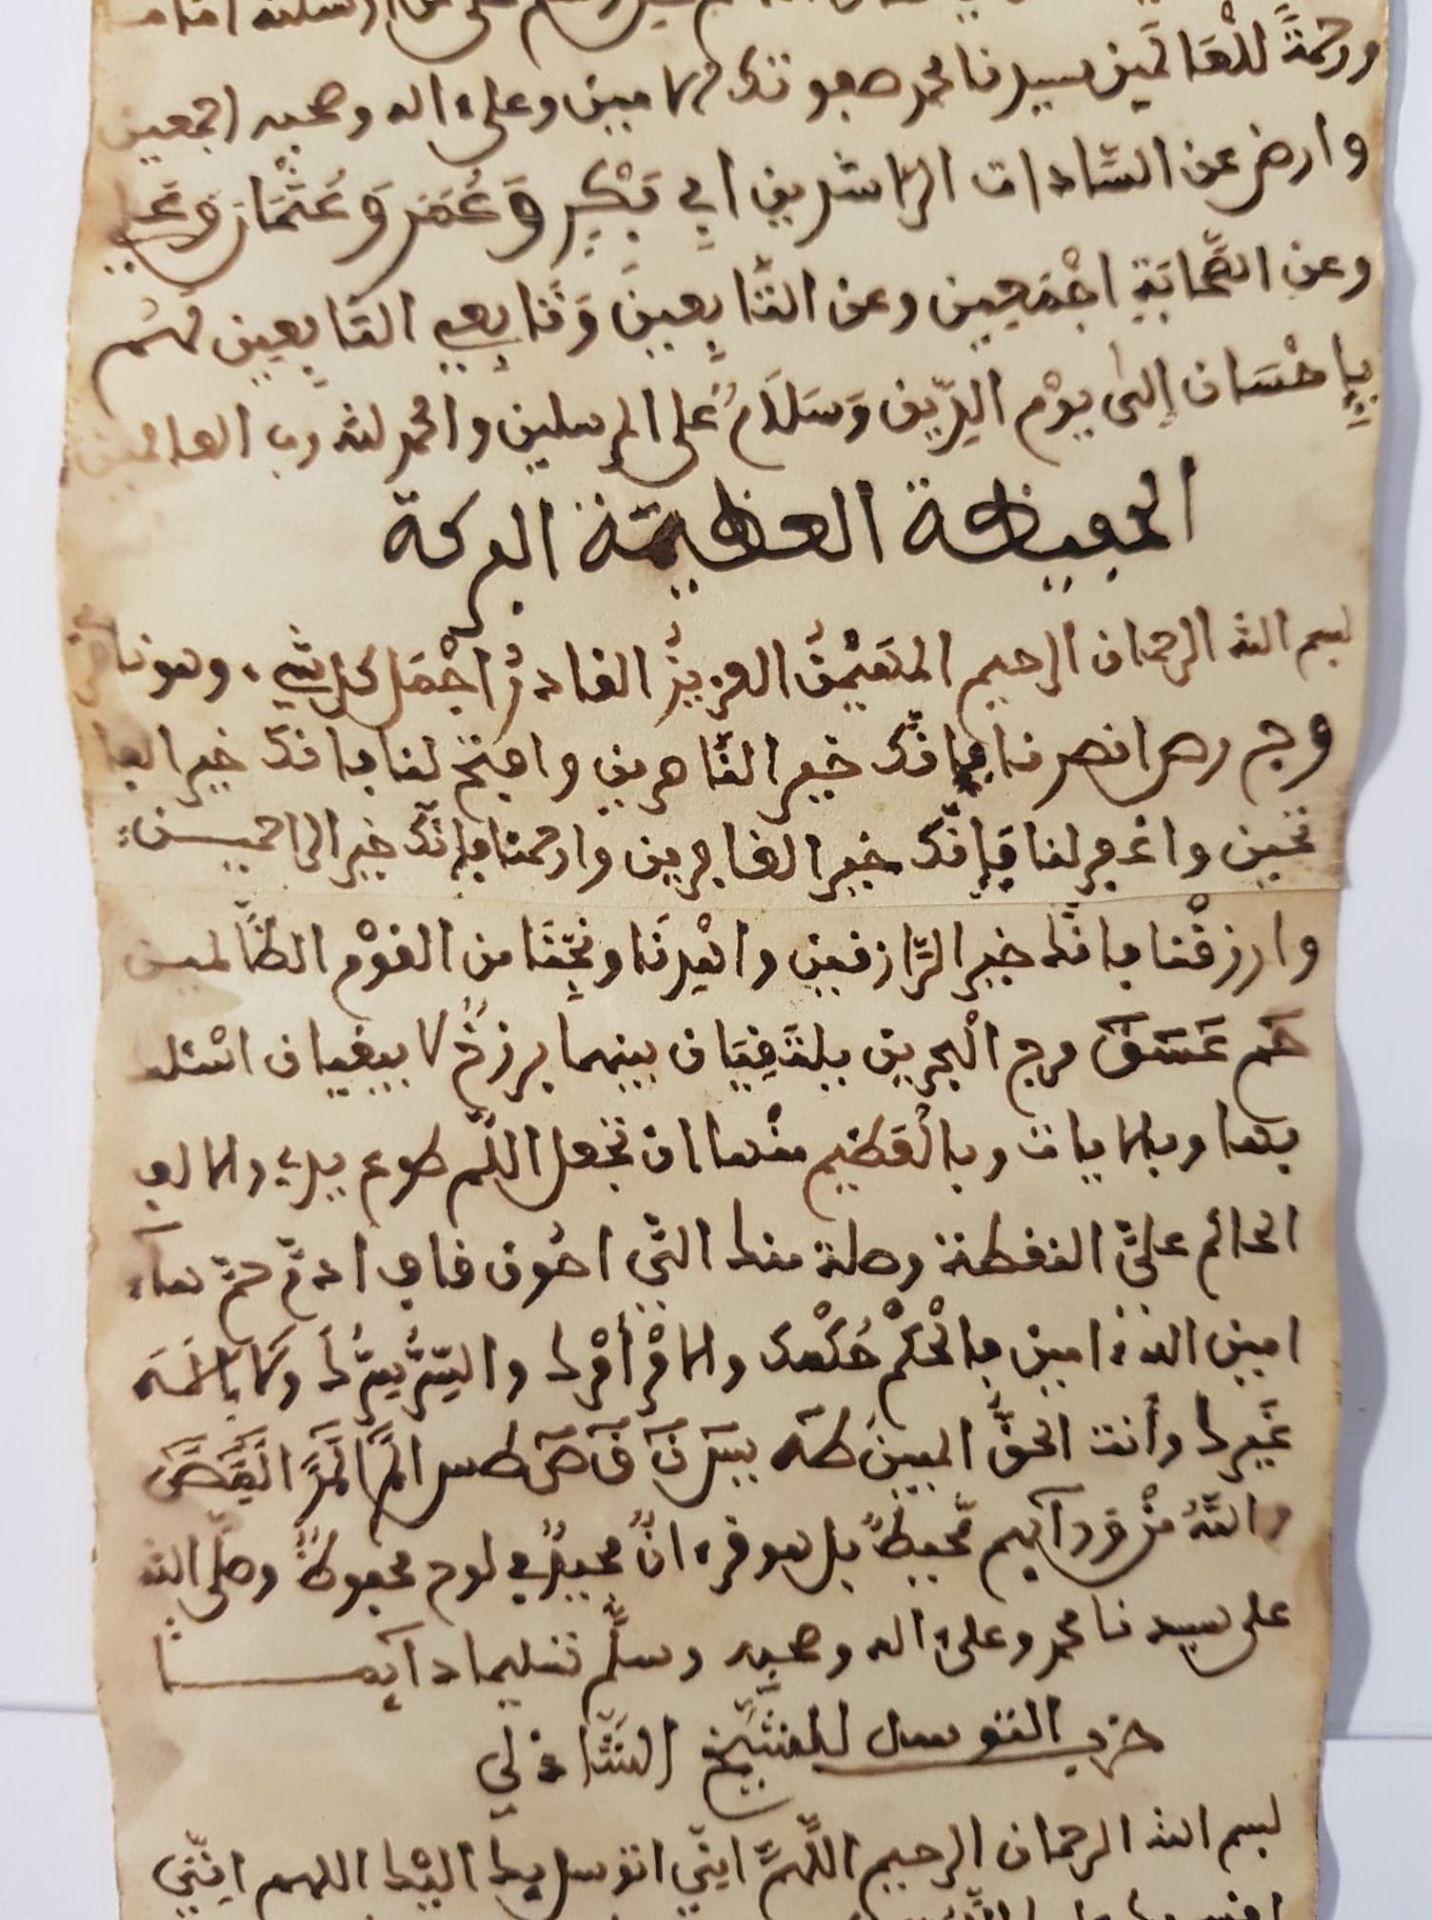 ورحمةً للعَالَمين سيدنا محمد صفوتك الامين وعلى اله وصحبه اجمعين
وارض عن السّادات الرّاشدين ابي بَكْرٍ وَعُمَر وَعُثْمَان وَعَلِي
وعن الصَّحابَةِ اجْمَعِين وعن التَّابِعِينَ وَتَابِعِي التَّابِعِين لَهُم
بِإِحْسَان إلى يَوْمِ الدِّين وَسَلَامٌ على المرسلين والحمد لله رب العالمين
الحفيظة العظيمة البركة
بسم الله الرحمان الرحيم المهَيْمِنُ العزيزُ القادرُ اجْمَل كل شيء وهو ناصر
انصرنا فإنَّك خير النَّاصرين وافتح لنا فانك خير الفا
تحين واغفر لنا فَإنّك خير الغافرين وارحمنا فإنّك خير الراحمين
وارزقْنا فانّك خير الرَّازقين واهْدِنَا ونَجِّنَا من القوْم الظَّالمين
حم عَسَقَ مرج الْبحرين يلتَقِيَان بينهما برزخٌ لا يبغيان اسْئلك
بها وبالايات وبالْعَظيم منها ان تجعل اللّم طوع يدي والالف
القائم علىَّ النقطة وصلة منك التي احُون قاف ادمّ حمّ هآء
امين الله امين فالحُكْمُ حُكْمك والامْرُ أمْرك والسِّرُّ سِرُّك ولا اله
غَيرك وأنت الحقُّ المبين طه يس ق ن ص طس الم المر المص
والله مِنْ وَرآئِهم مُّحِيطٌ بل هو قرءانٌ مجيدٌ في لوح محفوظٍ وصلَّى الله
على سيدنا محمد وعلى اله وصحبه وسلَّم تسليما دآئما
حزب التوسل للشَّيخ الشَّاذلي
بسم الله الرحمان الرحيم اللَّهُمَّ إنِّي اتوسل بك اليْك اللهم إنّني